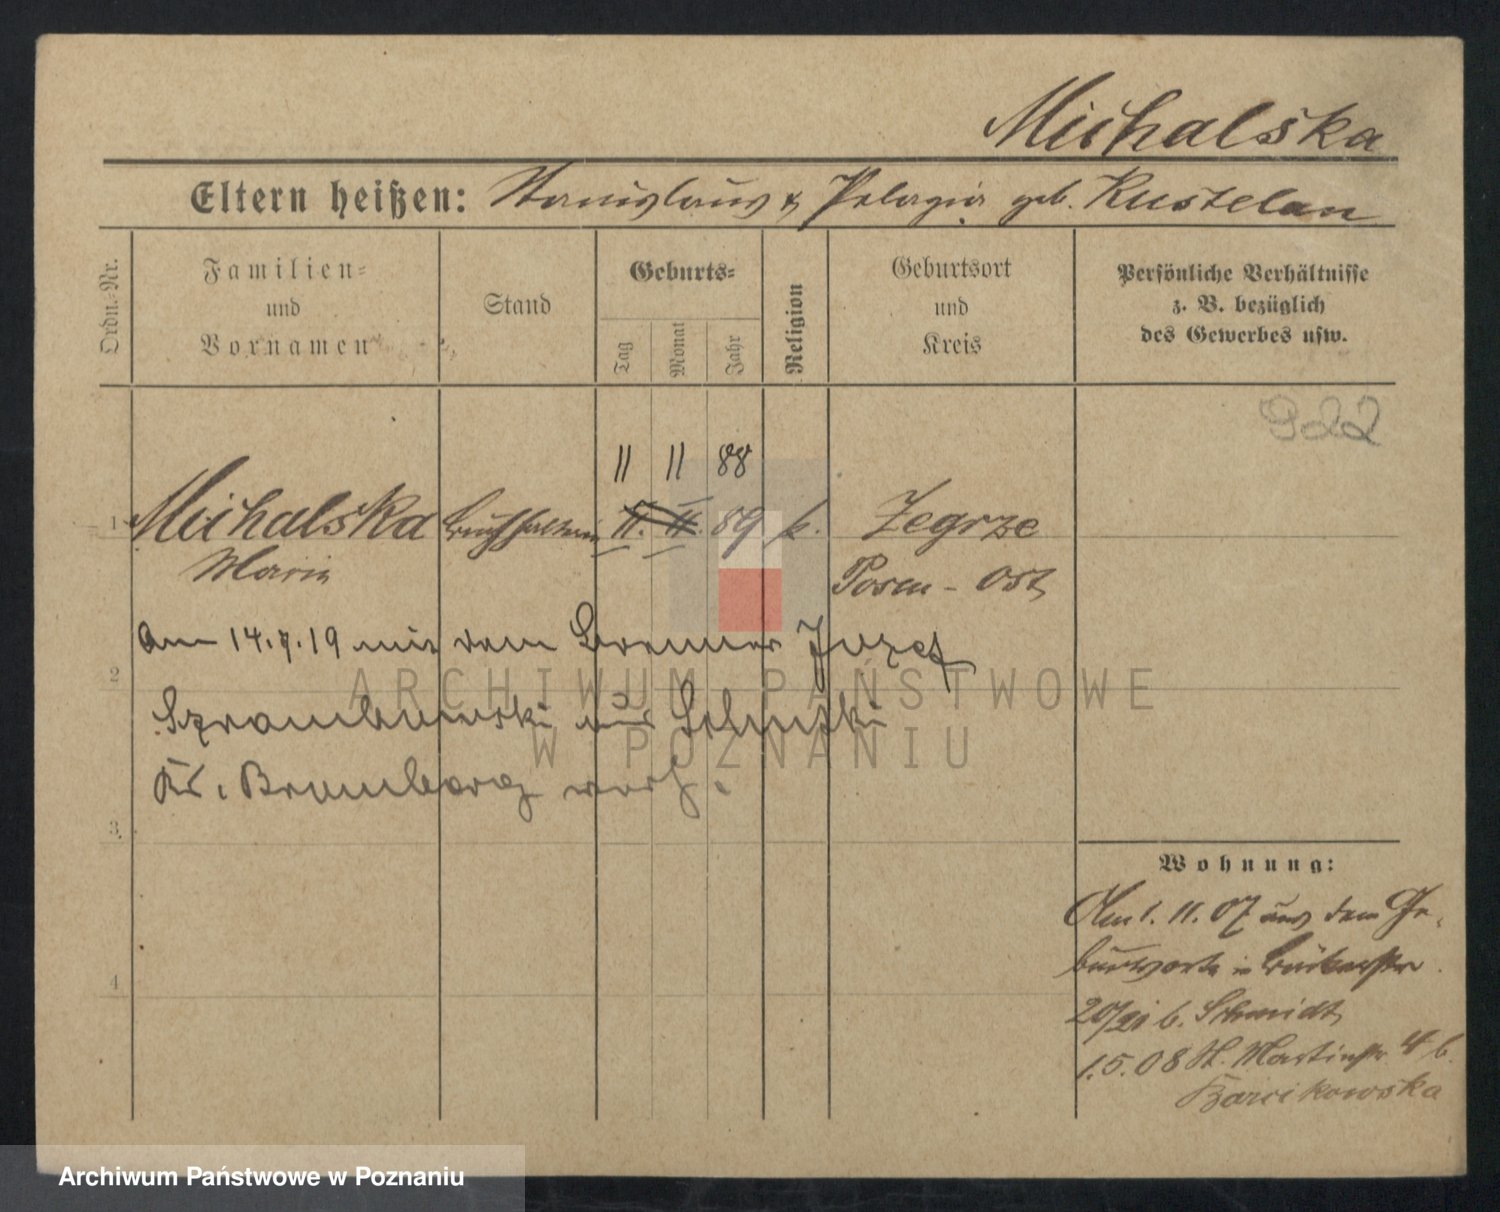 Michalska
Eltern heißen: Stanislaus & Pelagia geb. Kustelan
Ordn.-Nr.
Familien-
und
Vornamen
Stand
Geburts-
Tag
Monat
Jahr
Religion
Geburtsort
und
Kreis
Persönliche Verhältnisse
z. B. bezüglich
des Gewerbes usw.
922
11 11 88
1 Michalska Buchhalterin 11. 11. 89 k. Zegrze
Maria Posen-Ost
am 14.9.19 mit dem Brenner Jozef
2
aus
Kr. Bromberg verh.
3.
4
Wohnung:
Am 1. 11. 07 aus dem Ge-
burtsorte in
20/21 b. Schmidt
1.5.08 St. Martinstr. 4 b.
Barcikowska
ARCHIWUM PAŃSTWOWE
W POZNANIU
Archiwum Państwowe w Poznaniu